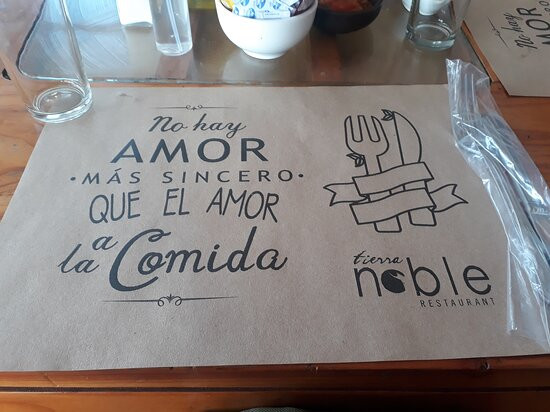 No hay
AMOR
• MÁS SINCERO •
QUE EL AMOR
a
la Comida
tierra
noble
RESTAURANT
No hay
MOR